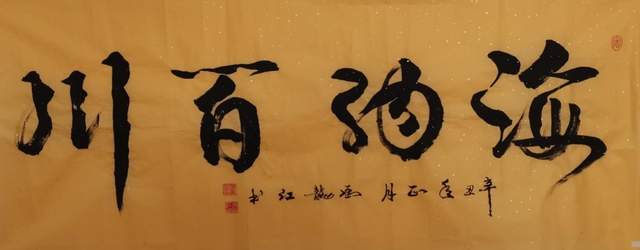 海纳百川
辛丑年正月 龙江书